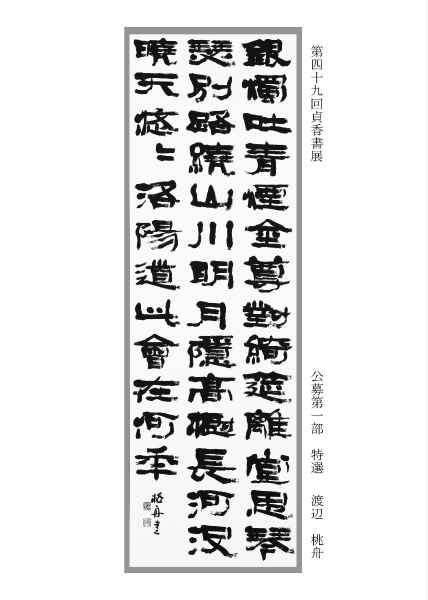 第四十九回貞香書展
公募第一部 特選 渡辺 桃舟
銀燭吐青煙金尊對綺筵離堂思琴
瑟別路繞山川明月隱高樹長河没
曉天悠〻洛陽道此會在何年
桃舟書